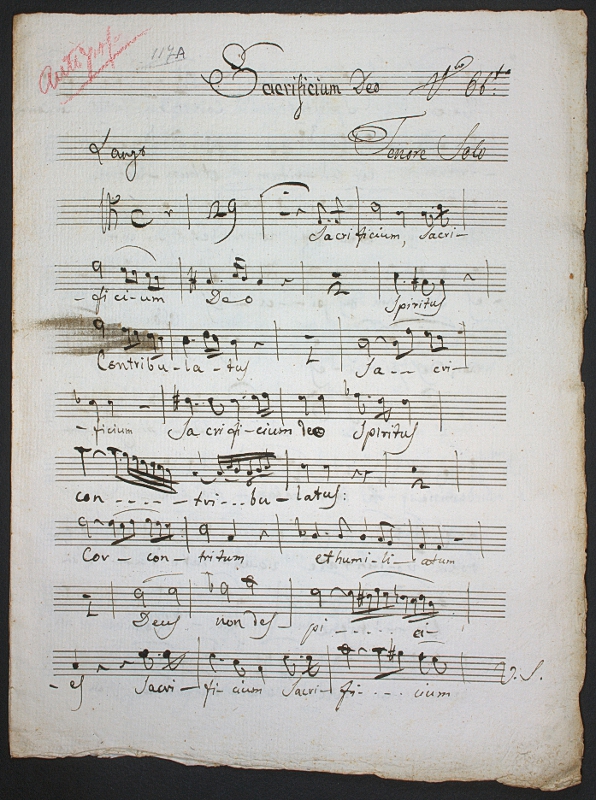 117A
Sacrificium Deo No 66
Largo Tenore Solo
29
Sacrificium, Sacri-
-fici-um Deo 2 Spiritus
Contribu-la-tus Sa-- cri-
-ficium Sacrifi-cium Deo Spiritus
con----tri--bu-latus:
2
Cor- con-tritum et humi-li-atum
Deus non des- pi---- ci-
-es Sacri-fi-cium Sacri-fi---- cium V. S.